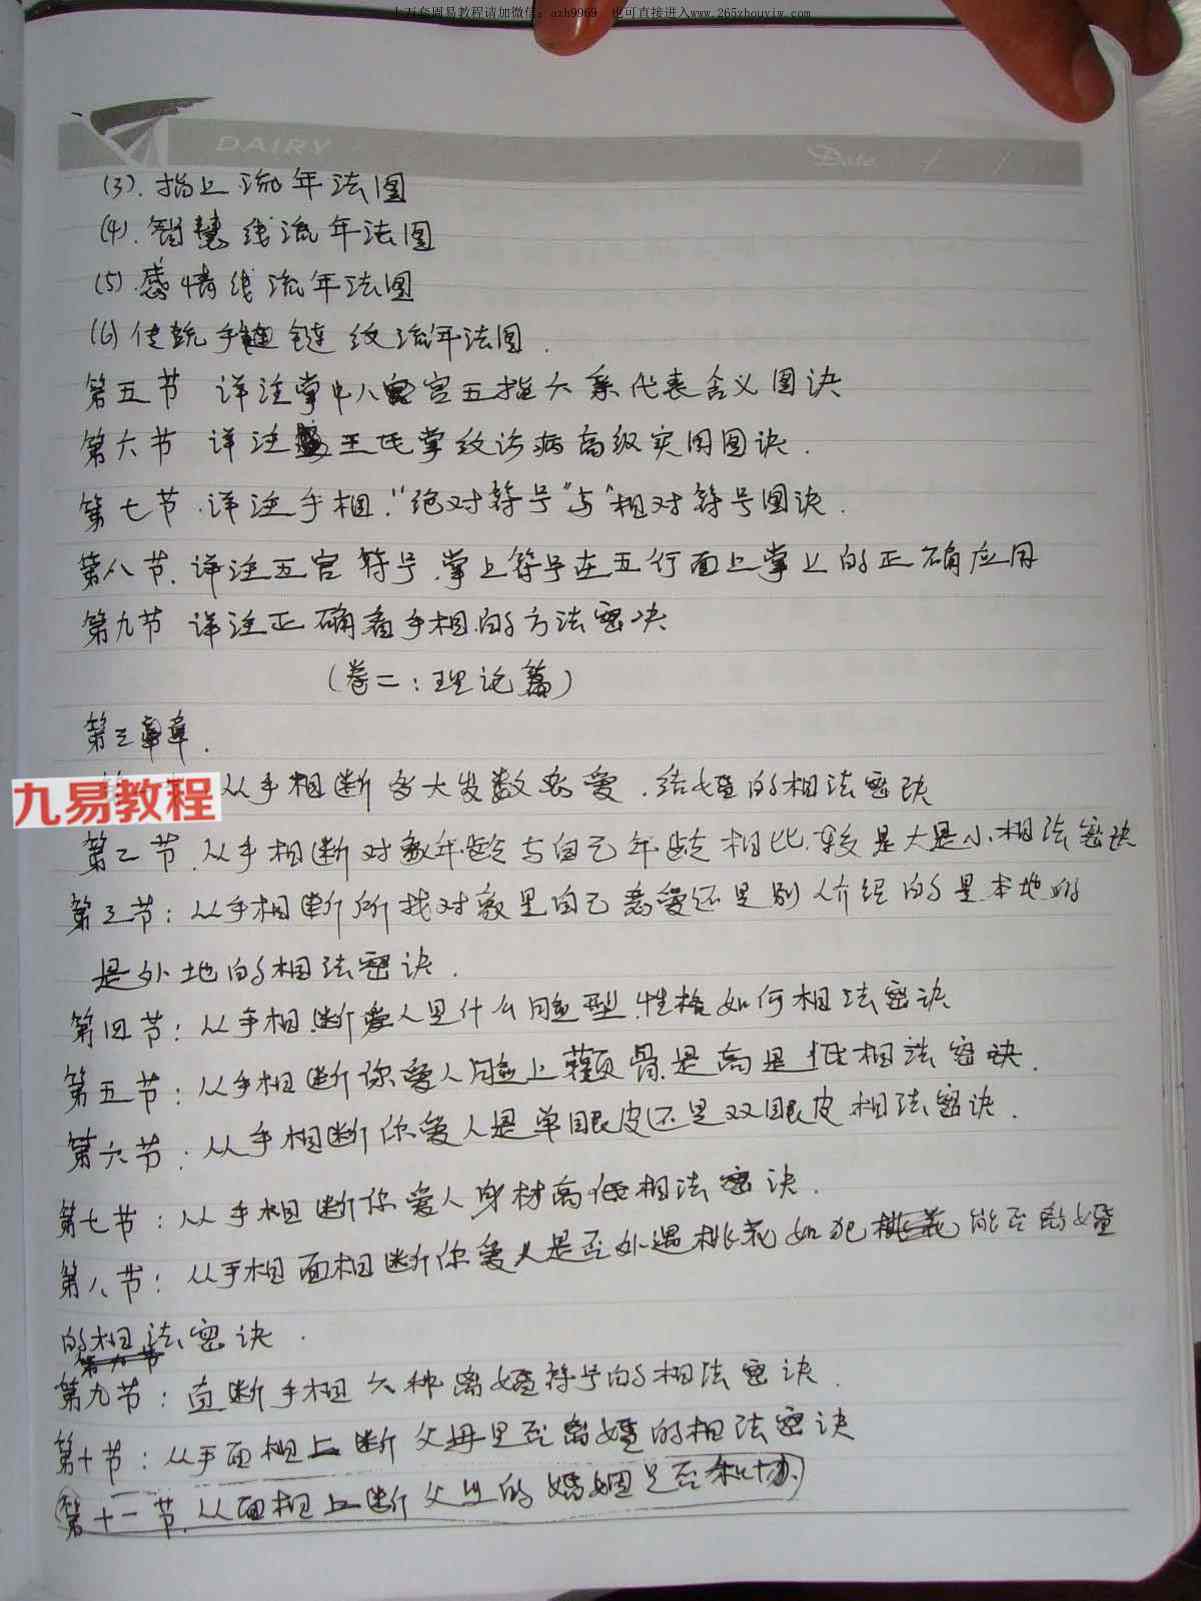 上万套周易教程请加微信:azh9969 也可直接进入www.265zhouyiw.com
DAIRY
Date / /
(3).指上流年法图
(4).智慧线流年法图
(5).感情线流年法图
(6)传统手链纹流年法图.
第五节 详注掌中八宫五指六亲代表含义图诀
第六节 详注王氏掌纹诊病高级实用图诀.
第七节.详注手相."绝对符号"与"相对符号图诀.
第八节.详注五官符号.掌上符号在五行面上掌上的正确应用
第九节 详注正确看手相的方法密决
(卷二:理论篇)
第三章.
九易教程
从手相断多大岁数恋爱.结婚的相法密诀
第二节.从手相断对象年龄与自己年龄相比.较是大是小相法密诀
第三节:从手相断所找对象是自己恋爱还是别人介绍的是本地的
是外地的相法密诀.
第四节:从手相断爱人是什么脸型.性格如何相法密诀
第五节:从手相断你爱人脸上颧骨是高是低相法密诀.
第六节:从手相断你爱人是单眼皮还是双眼皮相法密诀.
第七节:从手相断你爱人身材高低相法密诀.
第八节:从手相面相断你爱人是否外遇桃花如犯桃花能否离婚
的相法密诀.
第九节
第九节:直断手相六种离婚符号的相法密诀.
第十节:从手面相上断父母是否离婚的相法密诀
第十一节.从面相上断父母的婚姻是否和协.